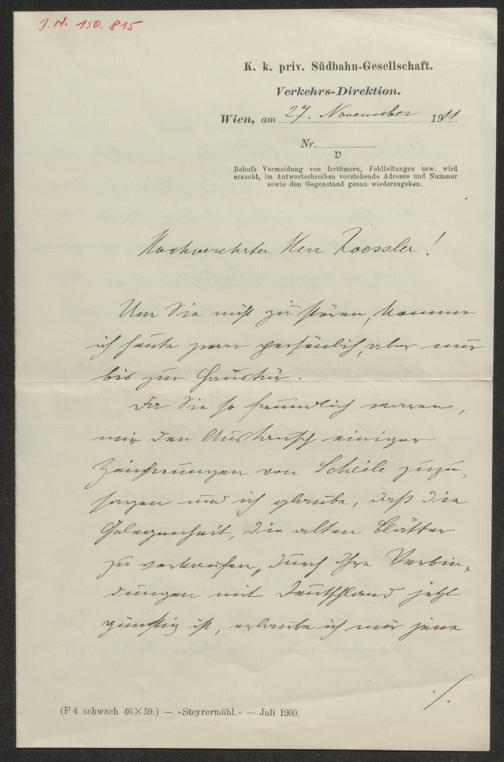 J.N. 150.815
K. k. priv. Südbahn-Gesellschaft.
Verkehrs-Direktion.
Wien, am 27. November 1911
Nr.
v
Behufs Vermeidung von Irrtümern, Fehlleitungen usw. wird
ersucht, im Antwortschreiben vorstehende Adresse und Nummer
sowie den Gegenstand genau wiederzugeben.
Hochverehrter Herr Roessler!
Um Sie nicht zu stören, komme
ich heute zwar persönlich, aber nur
bis zur Haustür.
Da Sie so freundlich waren,
mir den Austausch einiger
Zeichnungen von Schiele zuzu-
sagen und ich glaube, daß die
Gelegenheit, die alten Blätter
zu verkaufen, durch Ihre Verbin-
dungen mit Deutschland jetzt
günstig ist, erlaube ich mir jene
./.
(F 4. schwach 46×59.) — »Steyrermühl.« — Juli 1909.